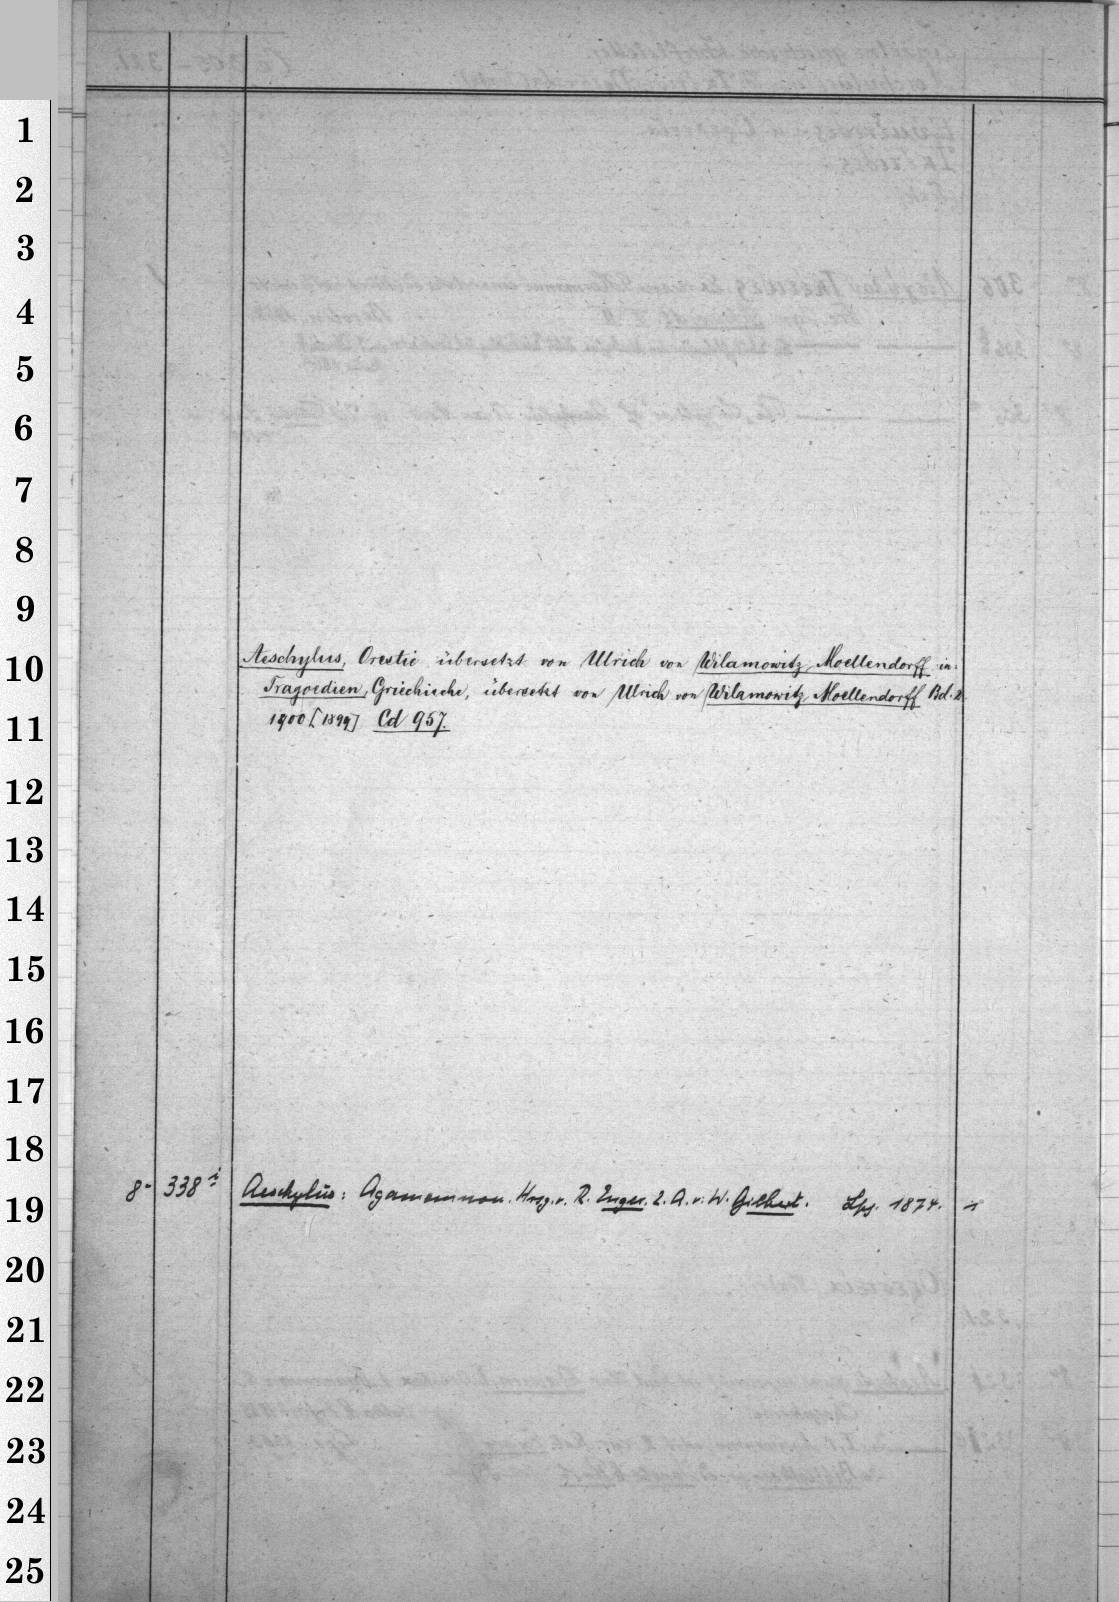 1
2
3
4
5
6
7
8
9
10
Aeschylus, Orestie übersetzt von Ulrich von Wilamowitz Moellendorff in:
Tragoedien, Griechische, übersetzt von Ulrich von Wilamowitz Moellendorff Bd. 2.
1900 [1899] Cd 957.
11
12
13
14
15
16
17
18
8° 338 i Aeschylus: Agamemnon. Hrsg. v. R. Enger. 2. A. v. W. Gilbert. Lpz. 1874. 1
19
20
21
22
23
24
25